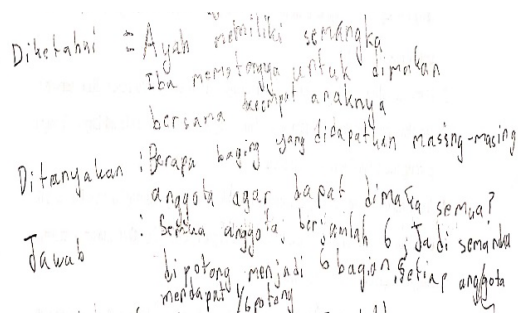 Diketahui : Ayah memiliki semangka
Ibu memotongya untuk dimakan
bersama keempat anaknya
Ditanyakan : Berapa baging yang didapatkan masing-masing
anggota agar dapat dimaka semua?
Jawab : Semua anggota berjumlah 6, Jadi semangka
dipotong menjadi 6 bagian, setiap anggota
mendapat 1/6 potong